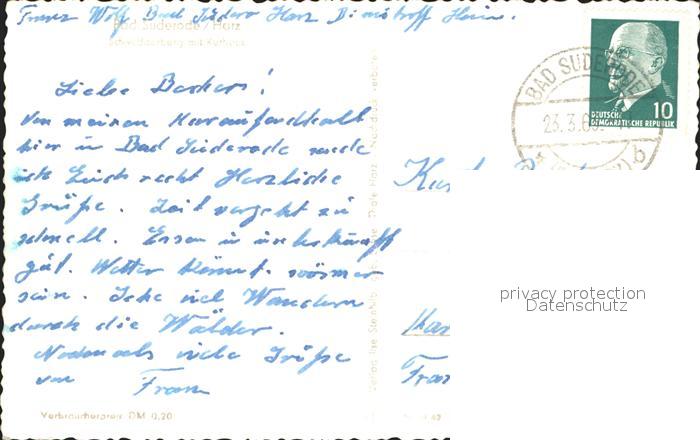 Franz Wolf Bad Suderode Harz Dimitroff Heim.
Bad Suderode / Harz
Schwedderberg mit Kurhaus
Liebe Beckers!
Von meinen Kuraufenthalt
hier in Bad Suderode sende
ich Euch recht Herzliche
Grüße. Zeit vergeht zu
schnell. Essen u unterkunft
gut. Wetter könnt. wärmer
sein. Gehe viel Wandern
durch die Wälder.
Nochmals viele Grüße
von Franz
Verbraucherpreis DM 0,20
Nachdruck verboten
BAD SUDERODE
23.3.6
b
10
DEUTSCHE
DEMOKRATISCHE REPUBLIK
privacy protection
Datenschutz